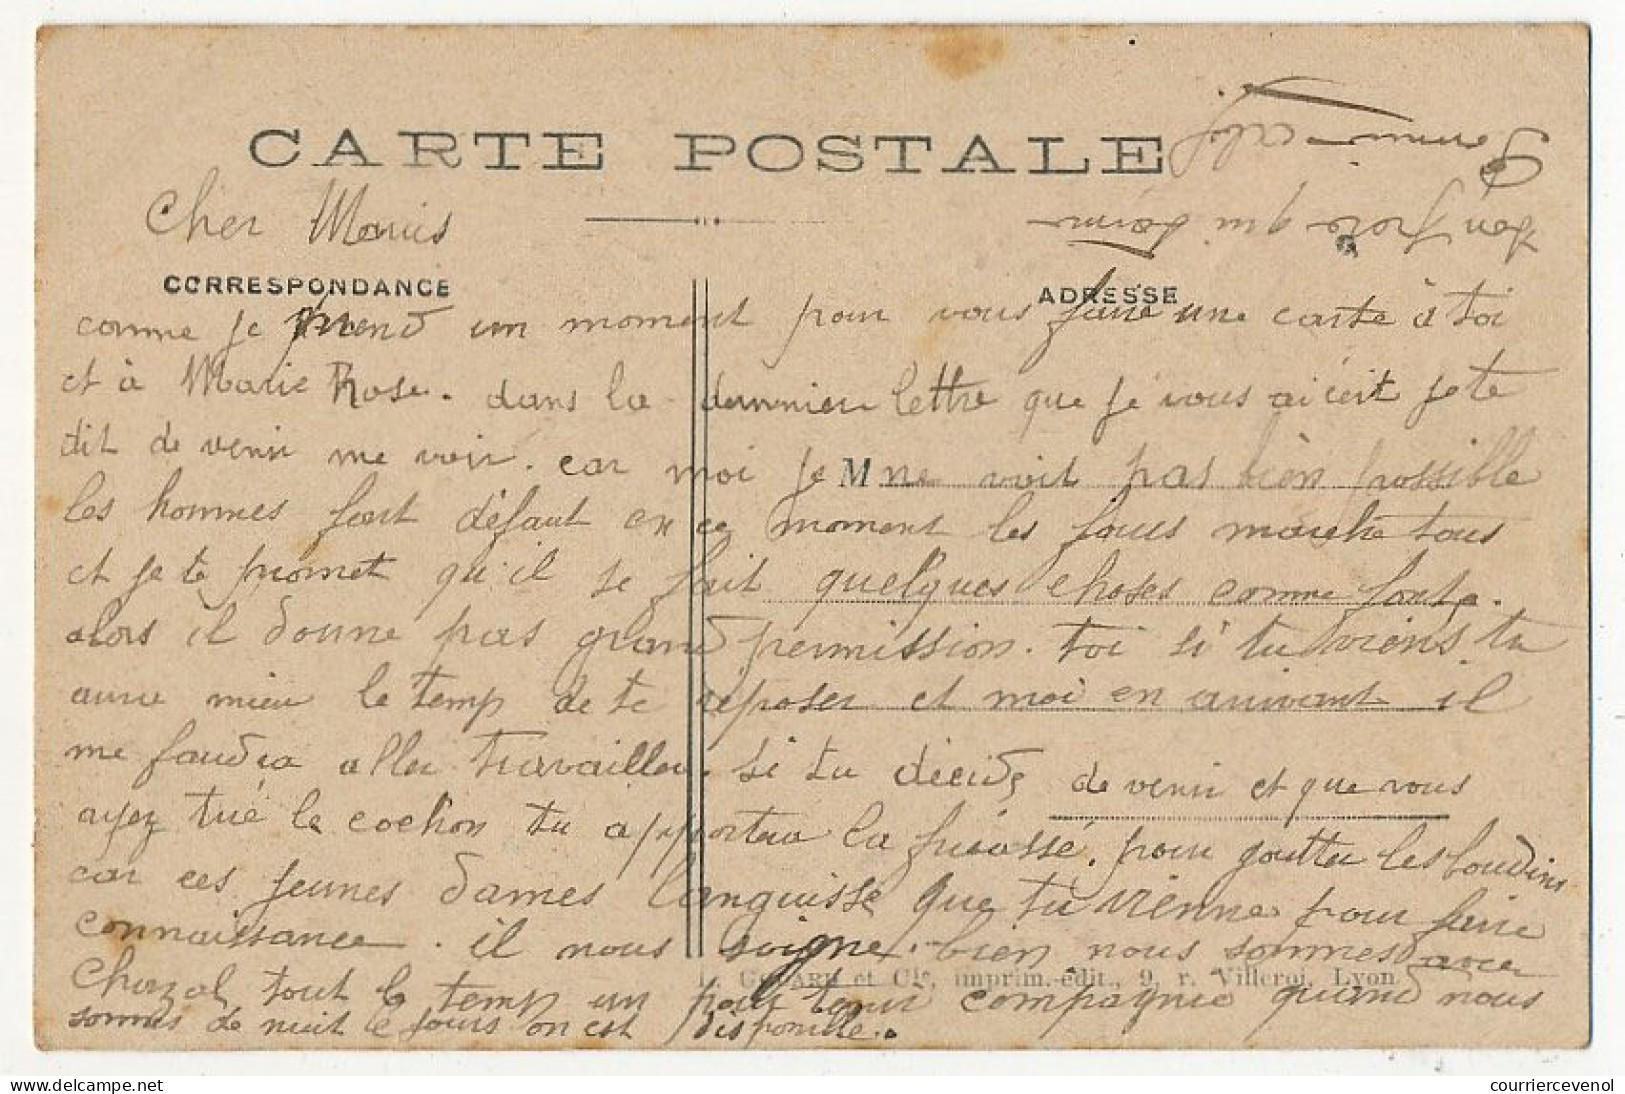 CARTE POSTALE
Cher Marius
CORRESPONDANCE
ADRESSE
comme je prend un moment pour vous faire une carte à toi
et à Marie Rose. dans la dernnier lettre que je vous ai écrit je te
dit de venir me voir. car moi je ne voit pas bien possible
M
les hommes font défaut en ce moment les fours marche tous
et je te promet qu'il se fait quelques choses comme fonte.
alors il donne pas grand permission. toi si tu viens tu
aura mieu le temp de te réposer et moi en arrivant il
me faudra aller travailler. si tu décide de venir et que vous
ayez tué le cochon tu apportera la fricassé. pour goutter les boudins
car ces jeunes dames languisse que tu vienne pour faire
connaissance. il nous soigne bien nous sommes avec
Chazal tout le temp un pour tenir compagnie quand nous
sommes de nuit le jours on est disponible.
et Cie, imprim.-édit., 9, r. Villeroi, Lyon
Ton frère qui t'aime
courriercevenol